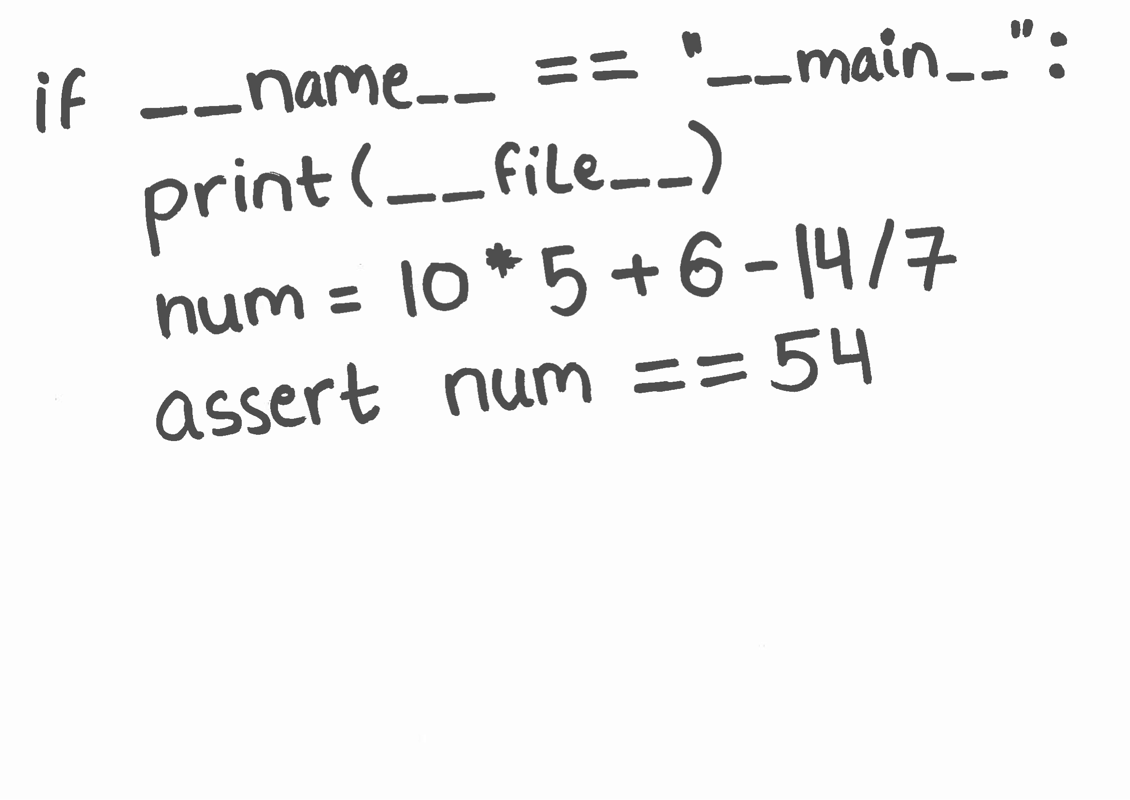 if __name__ == "__main__":
    print(__file__)
    num = 10 * 5 + 6 - 14/7
    assert num == 54